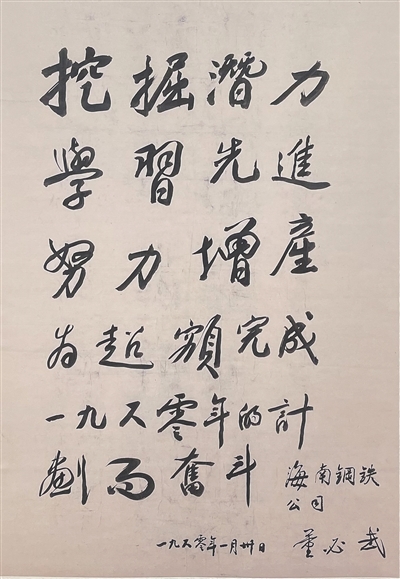 挖掘潛力
學習先進
努力增產
为超額完成
一九六零年的計
劃而奮斗
海南鋼鉄
公司
一九六零年一月卅日
董必武